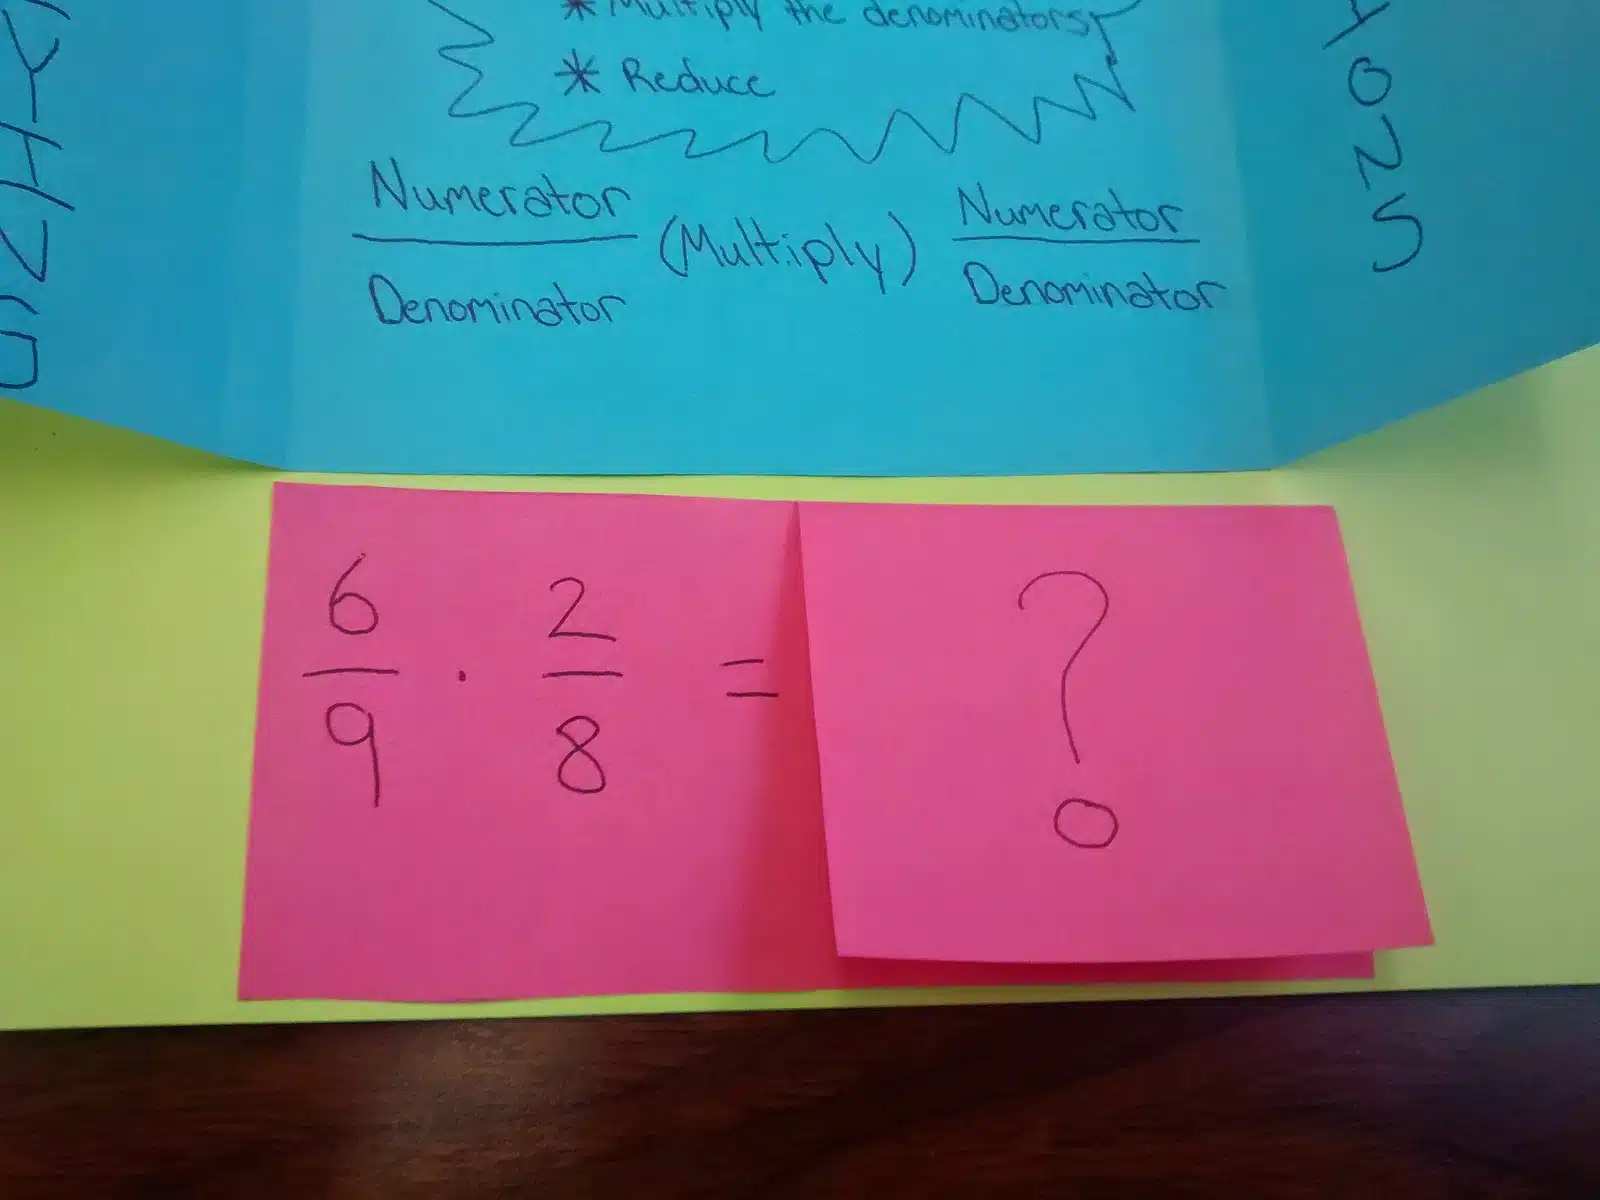 * Multiply the denominators
* Reduce
Numerator
Denominator
(Multiply)
Numerator
Denominator
6
9
·
2
8
=
?